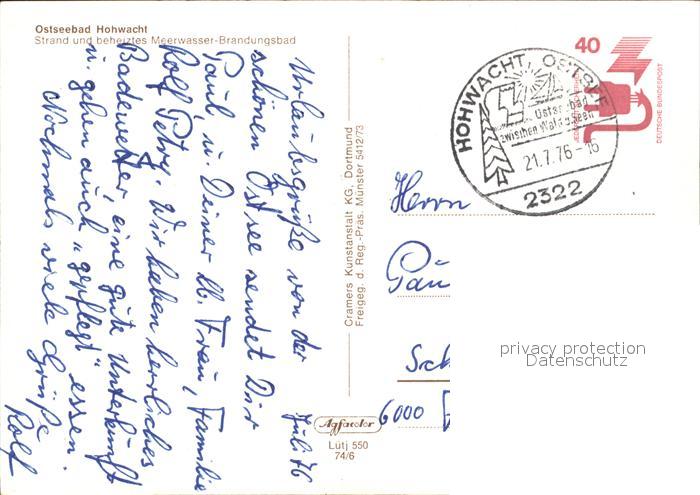 Ostseebad Hohwacht
Strand und beheiztes Meerwasser-Brandungsbad
Juli 76
Urlaubsgrüße von der
schönen Ostsee sendet Dir
Paul, u. Deiner lb. Frau, Familie
Rolf Petry. Wir haben herrliches
Badewetter, eine gute Unterkunft
u. gehen auch "gepflegt" essen.
Nochmals viele Grüße
Rolf
Cramers Kunstanstalt KG, Dortmund
Freigeg. d. Reg.-Präs. Münster 5412/73
Agfacolor
Lütj 550
74/6
40
DEUTSCHE BUNDESPOST
HOHWACHT, OSTSEE
Ostseebad
zwischen Wald und Seen
21.7.76-16
2322
Herrn
Pau
Sch
6000
privacy protection
Datenschutz